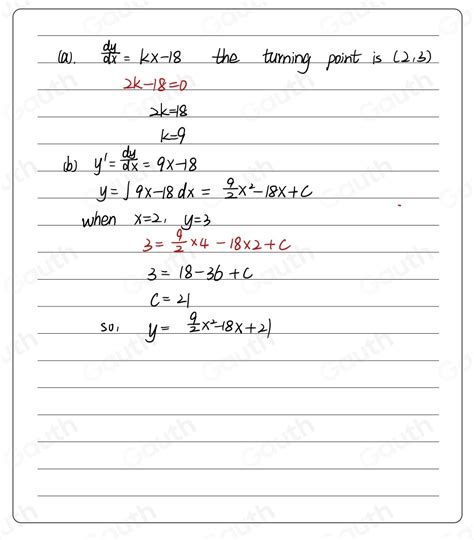 (a). dy/dx = kx-18 the turning point is (2,3)
2k-18=0
2k=18
k=9
(b) y'=dy/dx=9x-18
y=∫9x-18dx=9/2x²-18x+c
when x=2, y=3
3=9/2×4-18×2+c
3=18-36+c
c=21
so, y=9/2x²-18x+21